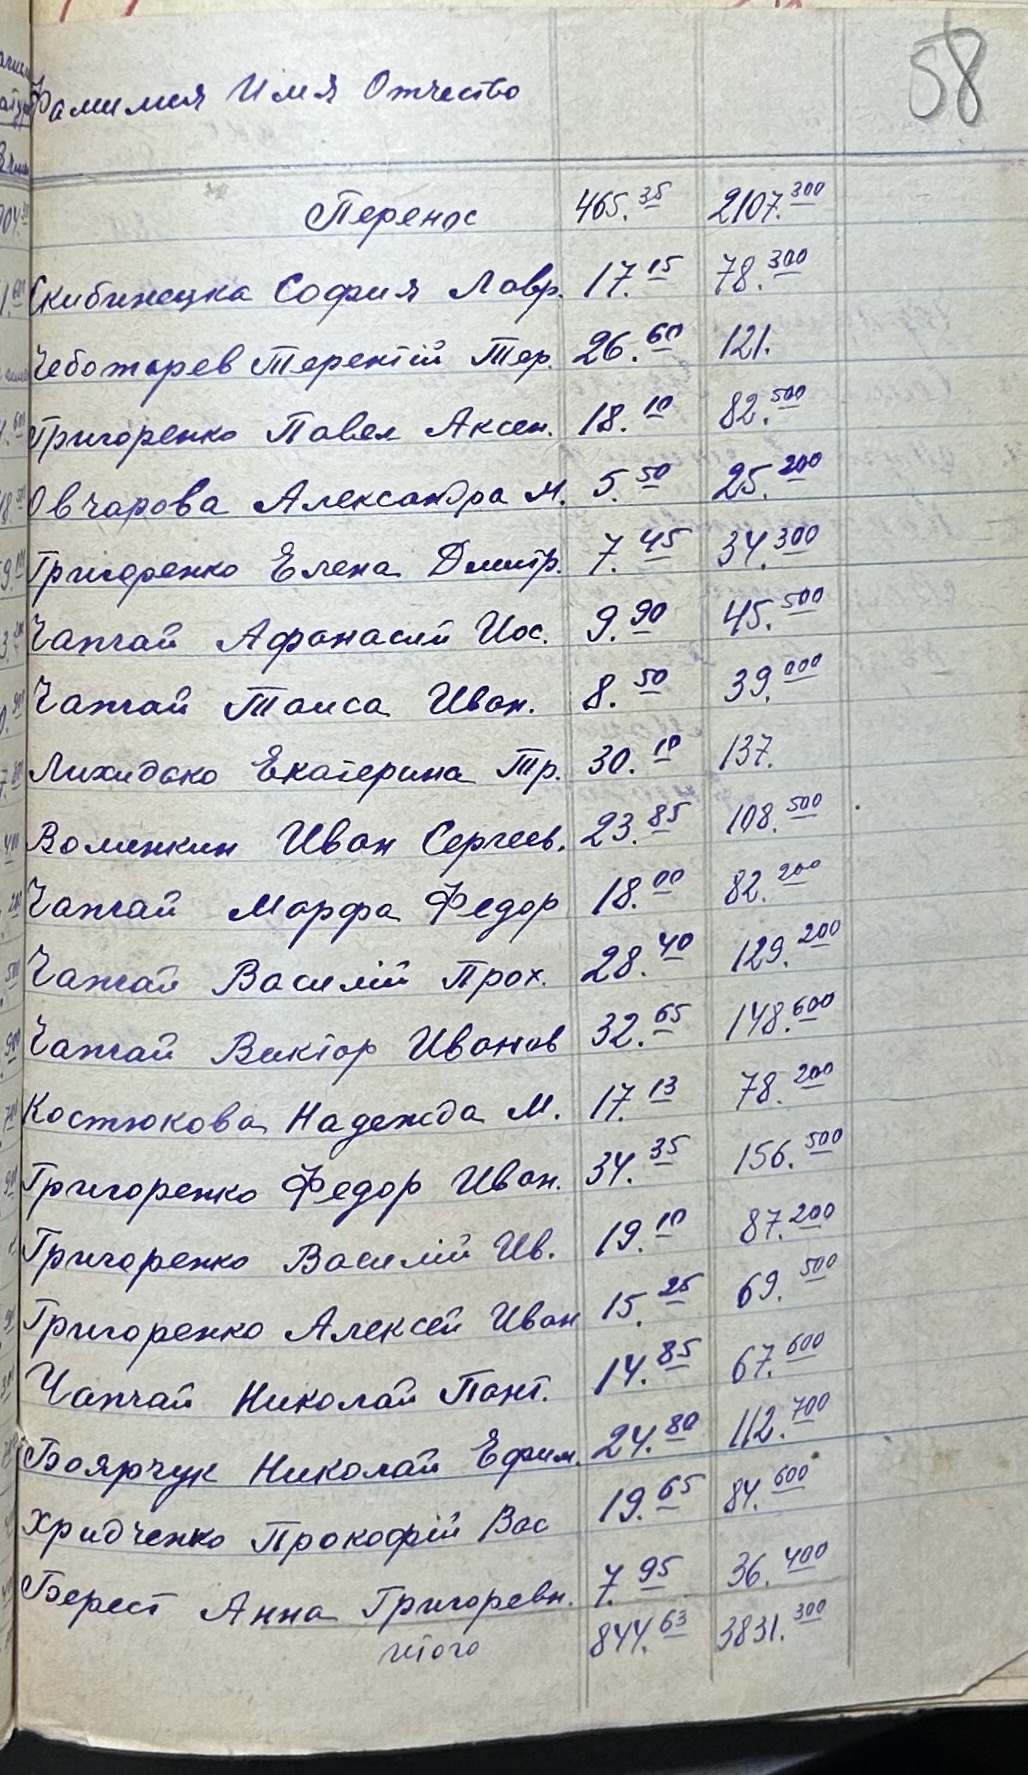 58
Фамилия Имя Отчество
Перенос 465.35 2107.300
Скибинецка София Лавр. 17.15 78.300
Чеботарев Терентій Тер. 26.60 121.
Григоренко Павел Аксен. 18.10 82.500
Овчарова Александра М. 5.50 25.200
Григоренко Елена Дмитр. 7.45 34.300
Чапчай Афанасій Иос. 9.90 45.500
Чапчай Таиса Иван. 8.50 39.000
Екатерина Тр. 30.10 137.
Волинкин Иван Сергеев. 23.85 108.500
Чапчай Марфа Федор 18.00 82.200
Чапчай Василій Прох. 28.40 129.200
Чапчай Виктор Иванов 32.65 148.600
Костюкова Надежда М. 17.13 78.200
Григоренко Федор Иван. 34.35 156.500
Григоренко Василій Ив. 19.10 87.200
Григоренко Алексей Иван 15.25 69.500
Чапчай Николай Пант. 14.85 67.600
Боярчук Николай Ефим. 24.80 112.700
Хридченко Прокофій Вас 19.65 84.600
Берест Анна Григоревн. 7.95 36.400
итого 844.63 3831.300